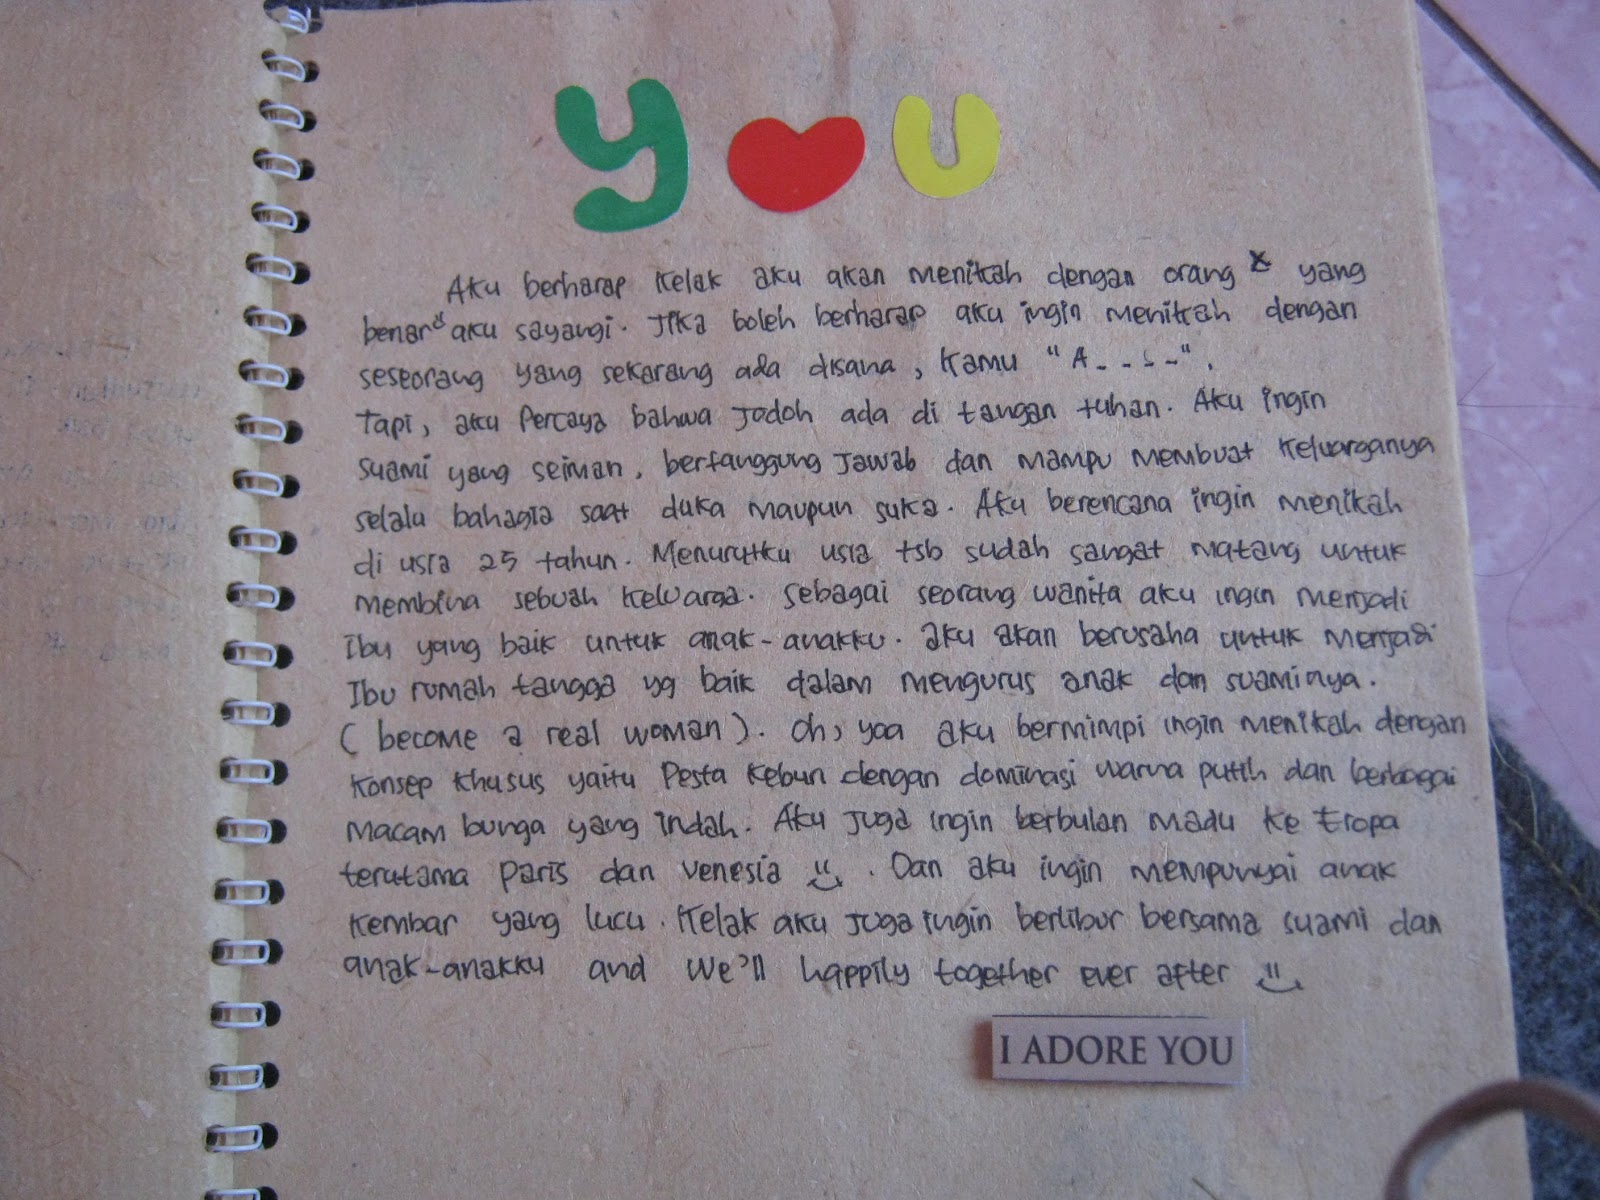 y♥u
Aku berharap kelak aku akan menikah dengan orang yang
benar² aku sayangi. Jika boleh berharap aku ingin menikah dengan
seseorang yang sekarang ada disana, kamu "A _ _ _ _".
Tapi, aku percaya bahwa jodoh ada di tangan tuhan. Aku ingin
suami yang seiman, bertanggung jawab dan mampu membuat keluarganya
selalu bahagia saat duka maupun suka. Aku berencana ingin menikah
di usia 25 tahun. Menurutku usia tsb sudah sangat matang untuk
membina sebuah keluarga. Sebagai seorang wanita aku ingin menjadi
Ibu yang baik untuk anak-anakku. aku akan berusaha untuk menjadi
Ibu rumah tangga yg baik dalam mengurus anak dan suaminya.
( become a real woman ). Oh, yaa aku bermimpi ingin menikah dengan
konsep khusus yaitu Pesta kebun dengan dominasi warna putih dan berbagai
macam bunga yang indah. Aku juga ingin berbulan madu ke Eropa
terutama Paris dan Venesia. Dan aku ingin mempunyai anak
kembar yang lucu. Kelak aku juga ingin berlibur bersama suami dan
anak-anakku and we'll happily together ever after
I ADORE YOU